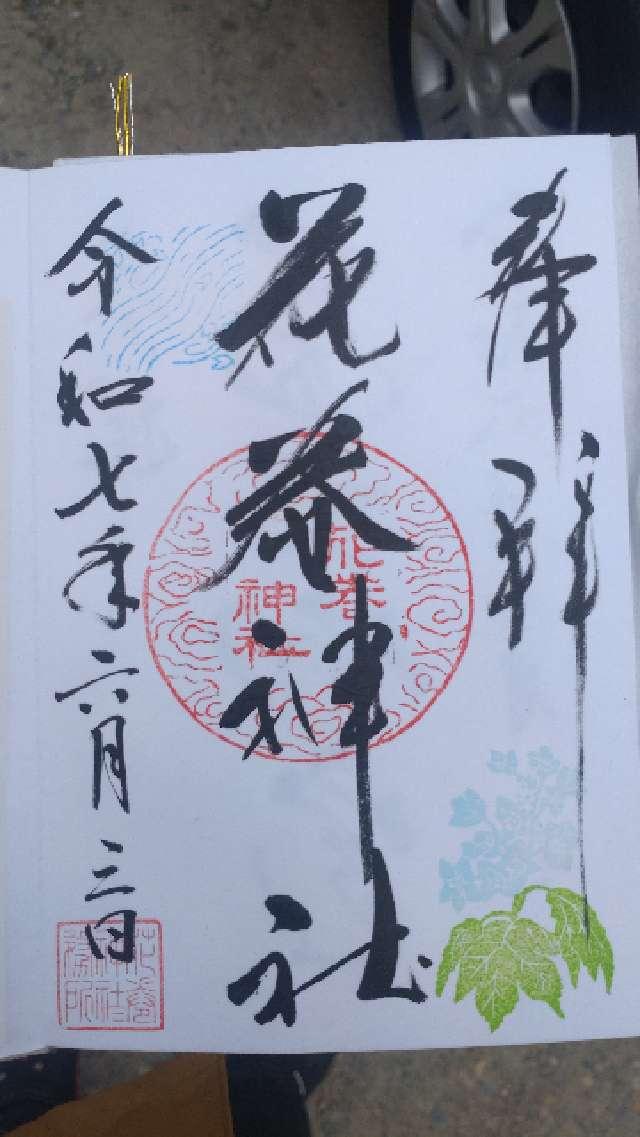 奉拝
花巻神社
令和七年六月三日
花巻
神社
花巻
神社
務所